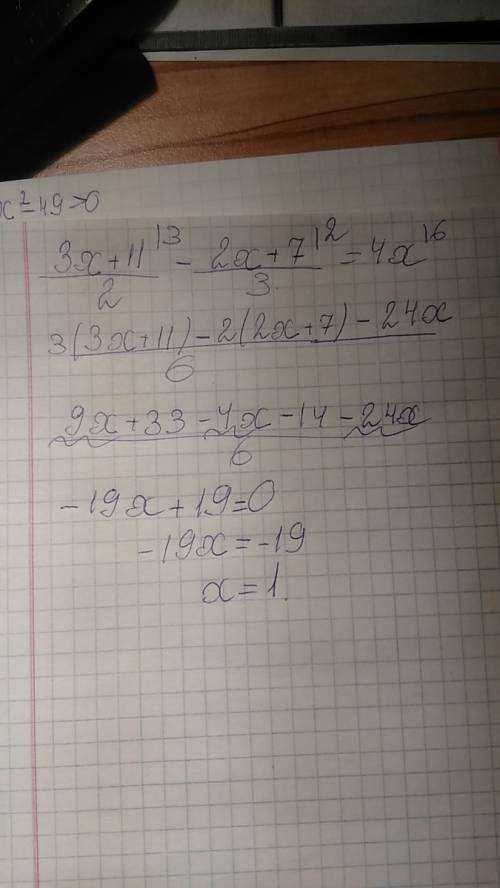 x²-49>0
(3x+11)/2 |3 - (2x+7)/3 |2 = 4x |6
(3(3x+11)-2(2x+7)-24x)/6
(9x+33-4x-14-24x)/6
-19x+19=0
-19x=-19
x=1.